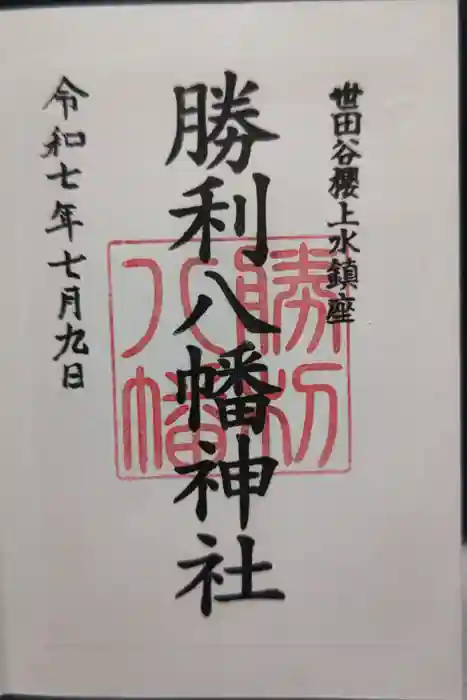 世田谷櫻上水鎮座
勝利八幡神社
勝利
八幡
令和七年七月九日